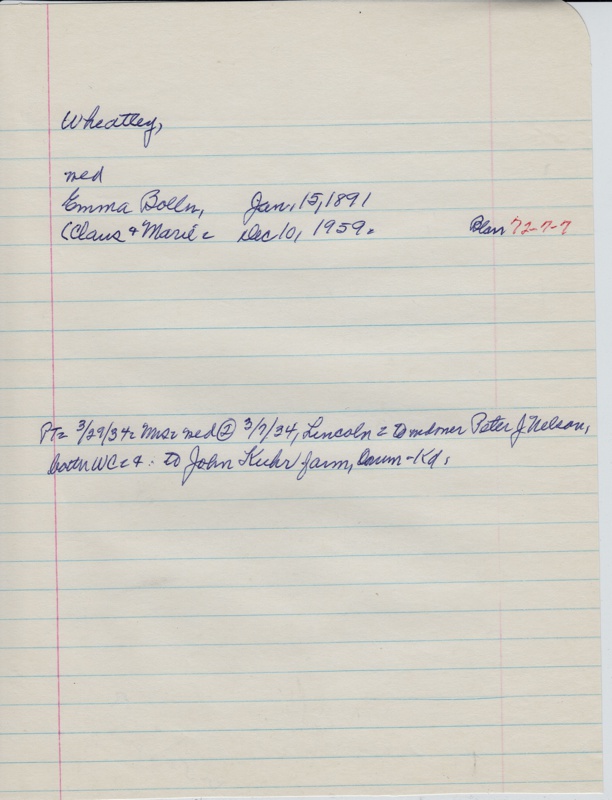 Wheatley,
wed
Emma Bolln, Jan. 15, 1891
(Claus & Marie. Dec 10, 1959. Blair 72-7-7
PT= 3/29/34= Mrs= wed ② 3/7/34, Lincoln = to Peter J Nelson,
both WC= & : to John Kuhr farm,